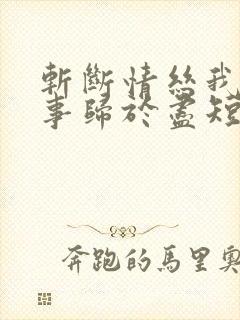 斬斷情絲我
事歸於盡短
奔跑的馬里奧